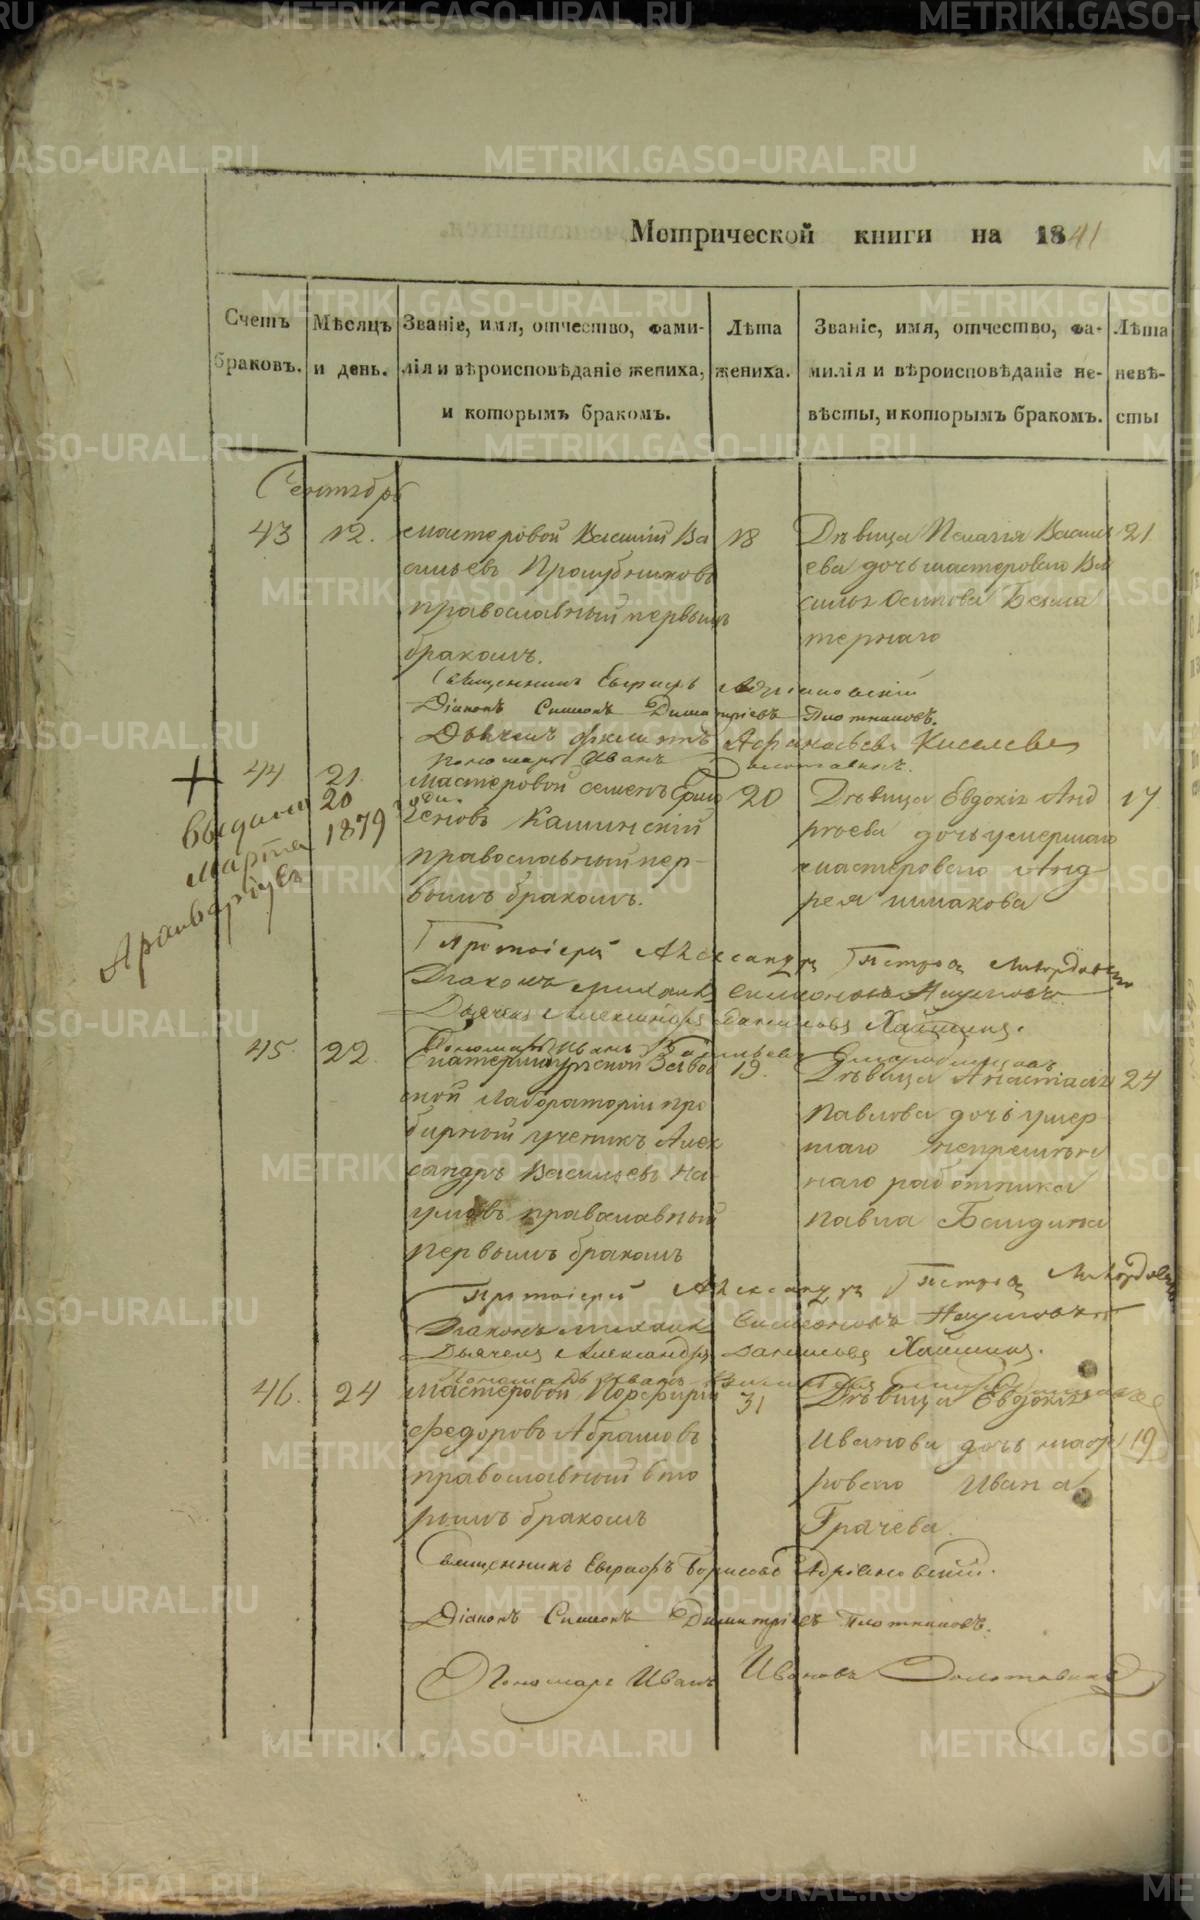 Метрической книги на 1841
Счетъ браковъ.
Мѣсяцъ и день.
Званіе, имя, отчество, фами-
лія и вѣроисповѣданіе жениха,
и которымъ бракомъ.
Лѣта
жениха.
Званіе, имя, отчество, фа-
милія и вѣроисповѣданіе не-
вѣсты, и которымъ бракомъ.
Лѣта
невѣ-
сты
Сентябрь
43
12.
мастеровой Василій Ва
сильевъ
православный первымъ
бракомъ.
18
Дѣвица Пелагія Василь
ева дочь мастероваго Ва
силья Осипова Безма
тернаго
21
Священникъ Евграфъ Адріановскій
Діаконъ Симеонъ Димитріевъ Плотниковъ.
Дьячекъ Афанасьевъ Киселевъ
Пономарь Иванъ Золотавинъ.
44
21.
мастеровой Семенъ Ермо
геновъ Кашинскій
православный пер-
вымъ бракомъ.
20
Дѣвица Евдокія Анд
реева дочь умершаго
мастероваго Анд
рея Шмакова
17
Выдана 20
марта 1879 года.
Протоіерей Александръ Петровъ
Діаконъ Михаилъ Симеоновъ Наумовъ
Дьячекъ Александръ Даниловъ Хлынинъ.
Пономарь Иванъ Васильевъ
45.
22.
Екатеринбургской Завод
ской Лабораторіи про
бирный ученикъ Алек
сандръ Васильевъ На
умовъ православный
первымъ бракомъ
19.
Дѣвица Анастасія
Павлова дочь умер
шаго непремѣн
наго работника
Павла Баидина
24
Протоіерей Александръ Петровъ
Діаконъ Михаилъ Симеоновъ Наумовъ
Дьячекъ Александръ Даниловъ Хлынинъ.
Пономарь Иванъ Васильевъ
46.
24
Мастеровой Порфирій
Федоровъ Абрамовъ
православный вто
рымъ бракомъ
31
Дѣвица Евдокія
Иванова дочь масте
роваго Ивана
Грачева.
19
Священникъ Евграфъ Борисовъ Адріановскій.
Діаконъ Симеонъ Димитріевъ Плотниковъ.
Пономарь Иванъ Ивановъ Золотавинъ
METRIKI.GASO-URAL.RU